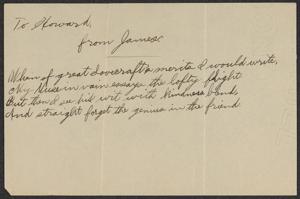 To Howard,
from James
When of great Lovecraft's merits I would write,
My Muse in vain essays the lofty flight
But then I see his wit with kindness bend
And straight forget the genius in the friend